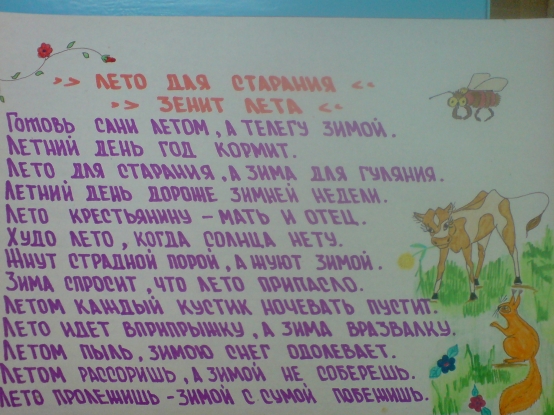 >> ЛЕТО ДЛЯ СТАРАНИЯ <<
>> ЗЕНИТ ЛЕТА <<
ГОТОВЬ САНИ ЛЕТОМ, А ТЕЛЕГУ ЗИМОЙ.
ЛЕТНИЙ ДЕНЬ ГОД КОРМИТ.
ЛЕТО ДЛЯ СТАРАНИЯ, А ЗИМА ДЛЯ ГУЛЯНИЯ.
ЛЕТНИЙ ДЕНЬ ДОРОЖЕ ЗИМНЕЙ НЕДЕЛИ.
ЛЕТО КРЕСТЬЯНИНУ – МАТЬ И ОТЕЦ.
ХУДО ЛЕТО, КОГДА СОЛНЦА НЕТУ.
ЖНУТ СТРАДНОЙ ПОРОЙ, А ЖУЮТ ЗИМОЙ.
ЗИМА СПРОСИТ, ЧТО ЛЕТО ПРИПАСЛО.
ЛЕТОМ КАЖДЫЙ КУСТИК НОЧЕВАТЬ ПУСТИТ.
ЛЕТО ИДЕТ ВПРИПРЫЖКУ, А ЗИМА ВРАЗВАЛКУ.
ЛЕТОМ ПЫЛЬ, ЗИМОЮ СНЕГ ОДОЛЕВАЕТ.
ЛЕТОМ РАССОРИШЬ, А ЗИМОЙ НЕ СОБЕРЕШЬ.
ЛЕТО ПРОЛЕЖИШЬ – ЗИМОЙ С СУМОЙ ПОБЕЖИШЬ.